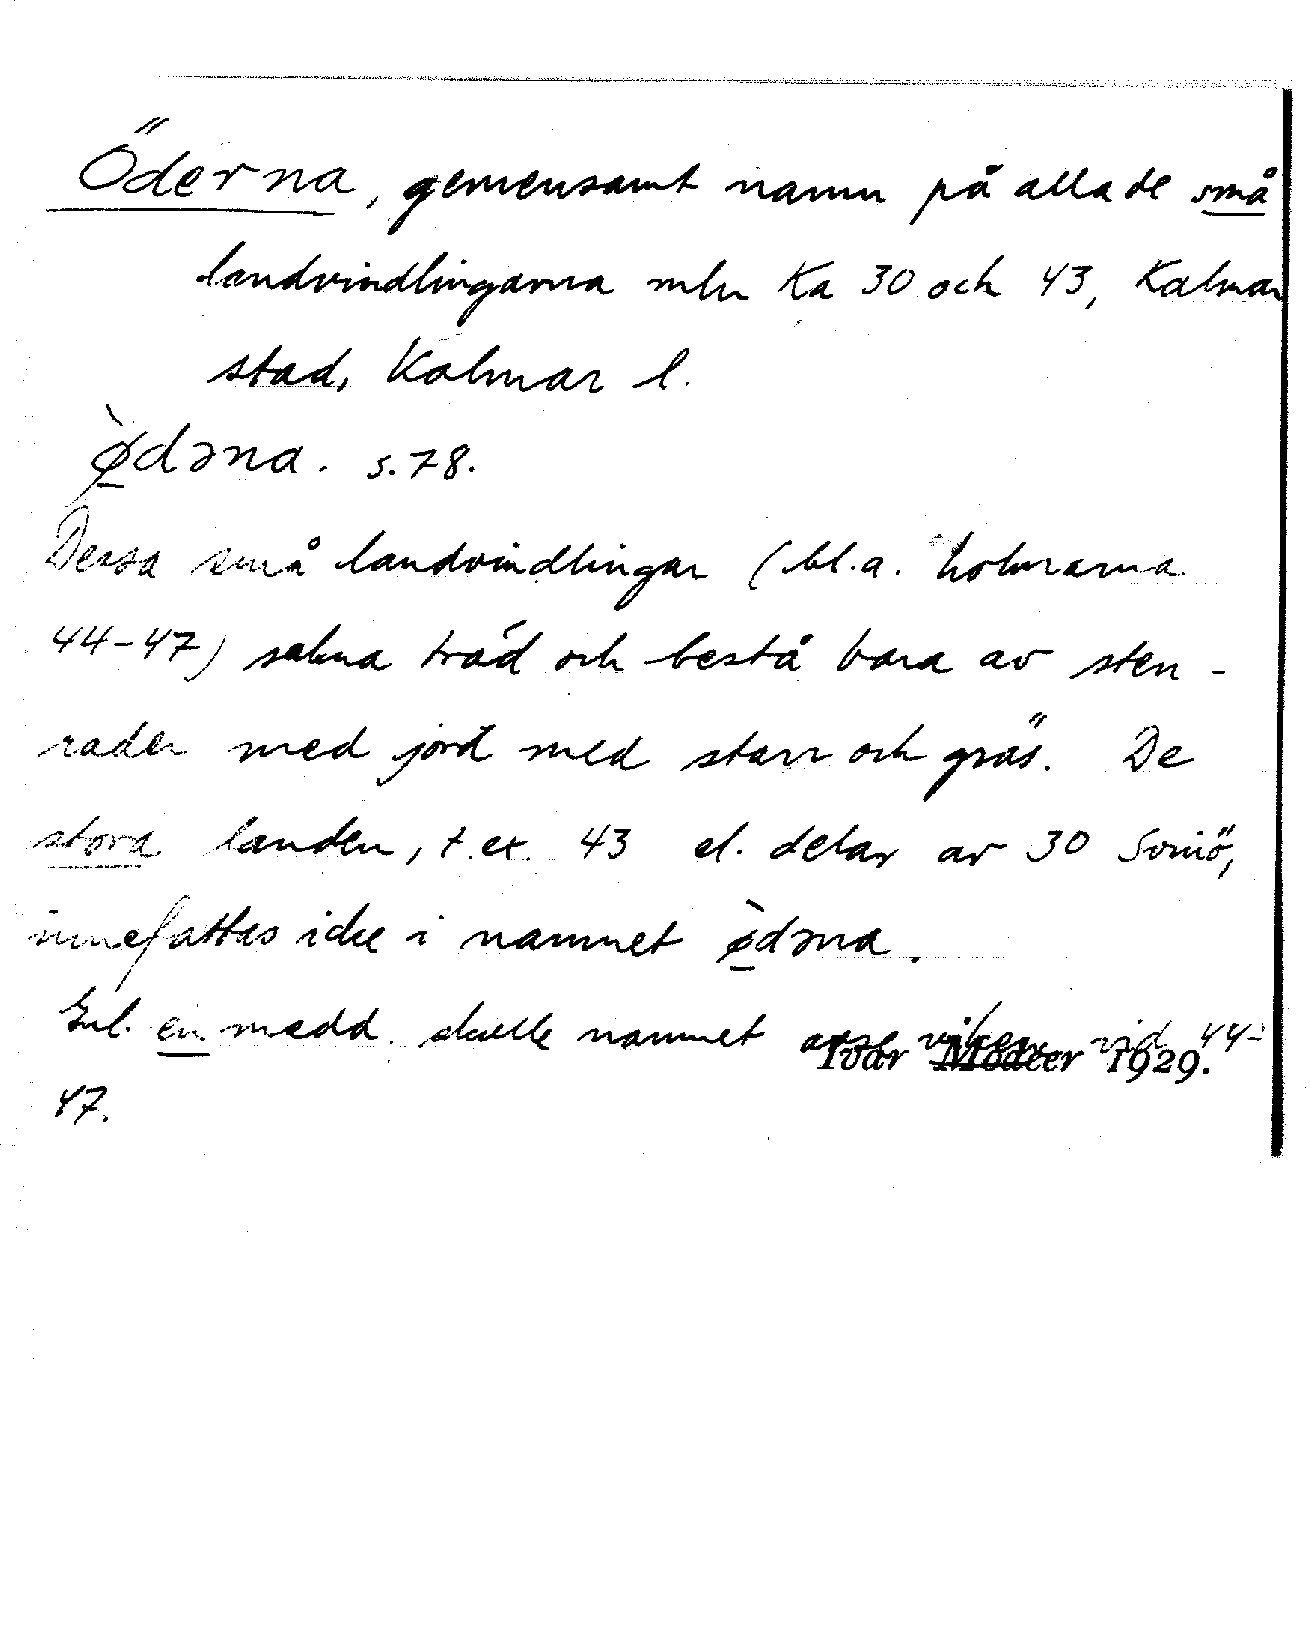 Öderna, gemensamt namn på alla de små
landvindlingarna mln Ka 30 och 43, Kalmar
stad, Kalmar l.
ø̀dəna. s. 78.
Dessa små landvindlingar (bl.a. holmarna
44-47) sakna träd och bestå bara av sten-
rader med jord med starr och gräs. De
stora landen, t.ex. 43 el. delar av 30 Svinö,
innefattas icke i namnet ø̀dəna.
Enl. en medd. skulle namnet avse viken vid 44-
Ivar Modéer 1929.
47.